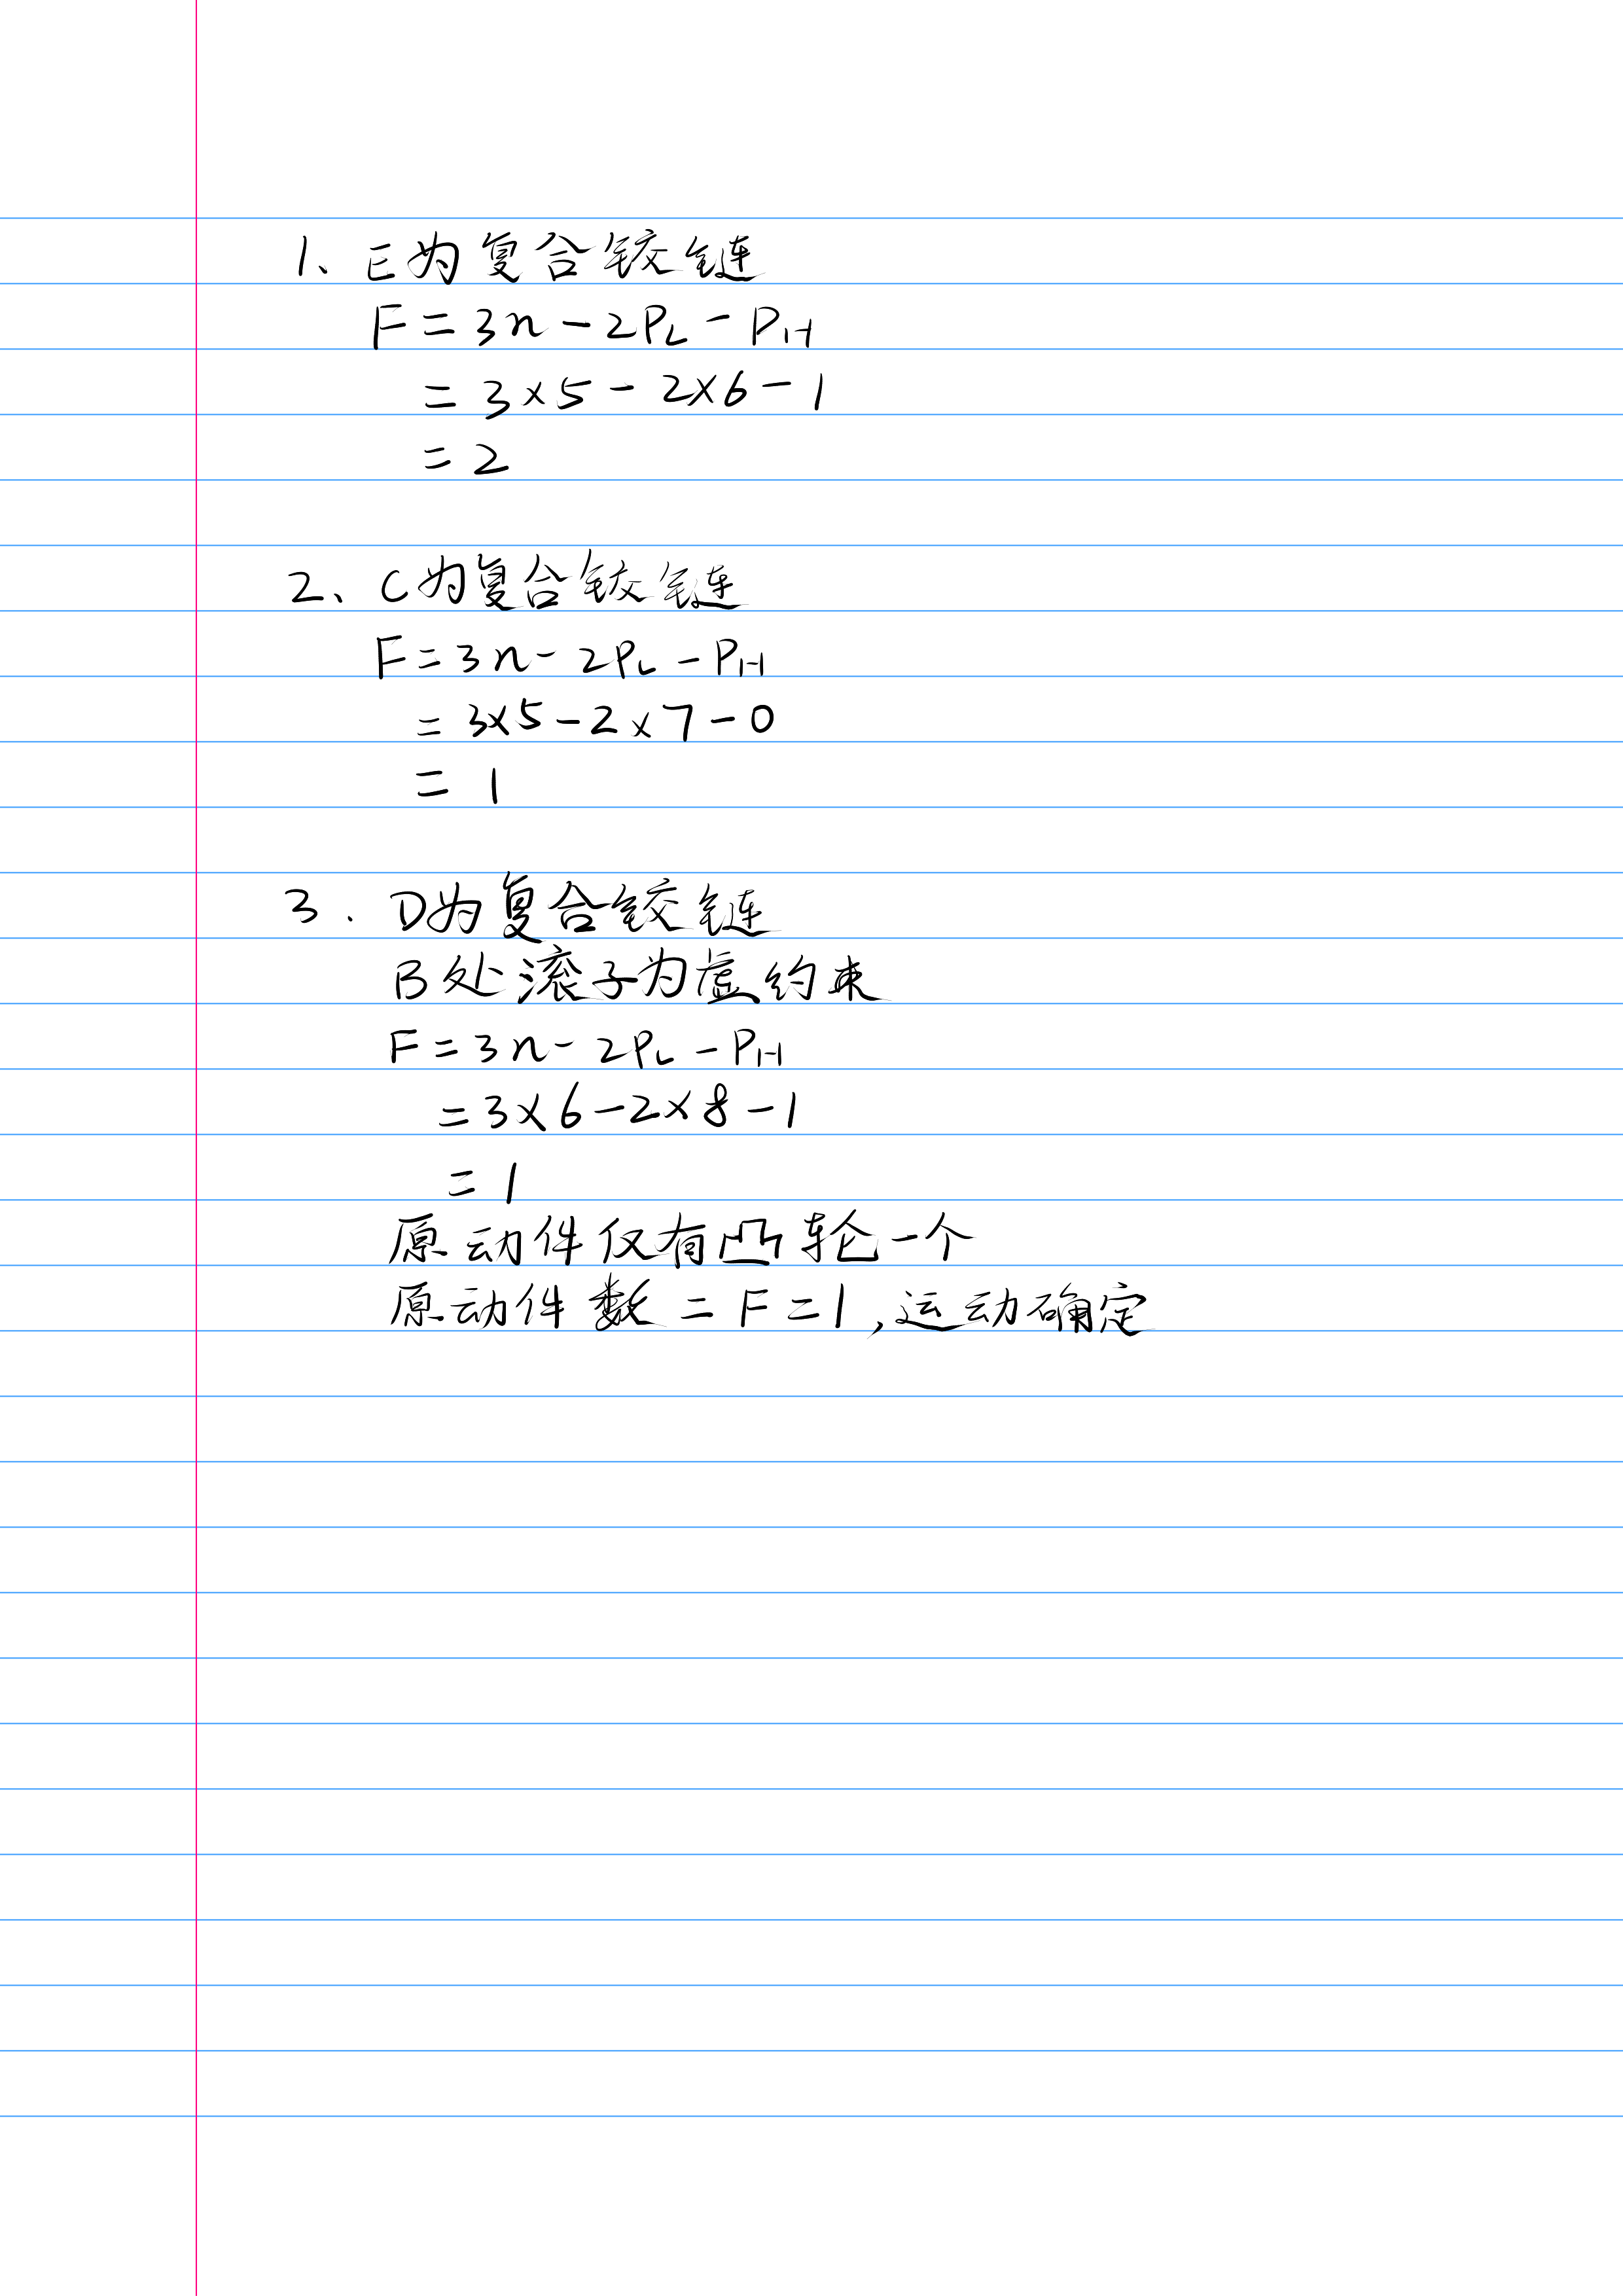 1、E为复合铰链
F=3n-2PL-PH
=3×5-2×6-1
=2
2、C为复合铰链
F=3n-2PL-PH
=3×5-2×7-0
=1
3.D为复合铰链
B处滚子为虚约束
F=3n-2PL-PH
=3×6-2×8-1
=1
原动件仅有凸轮一个
原动件数=F=1,运动确定